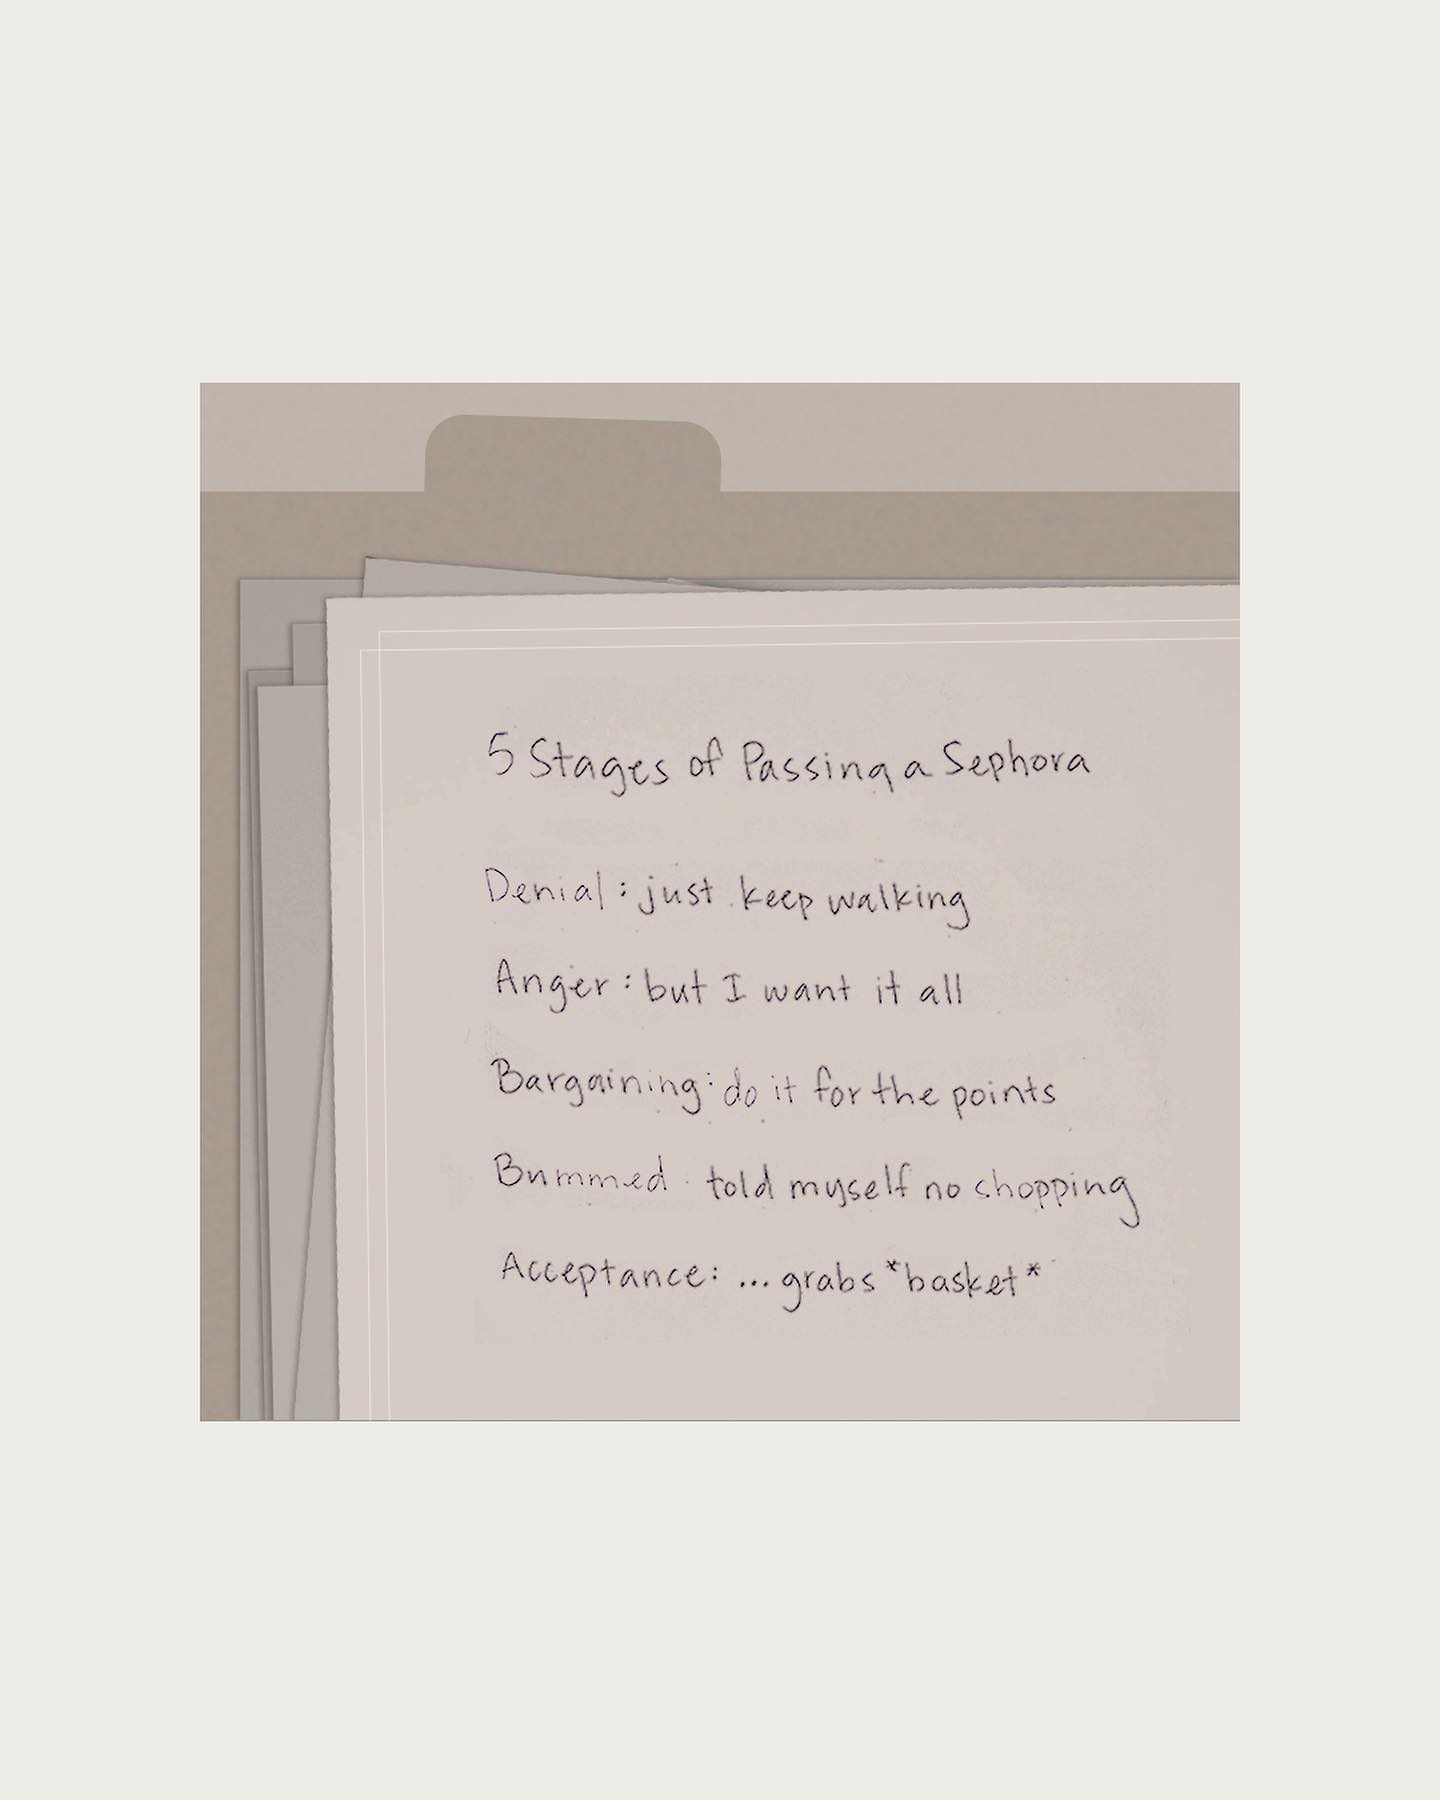 5 Stages of Passing a Sephora
Denial: just keep walking
Anger: but I want it all
Bargaining: do it for the points
Bummed: told myself no shopping
Acceptance: ... grabs *basket*